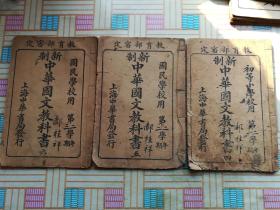 教育部審定
國民學校用
第三學年
新制中華國文教科書五
郝桂祥
上海中華書局發行
教育部審定
國民學校用
第二學期
新制中華國文教科書
郝桂祥
上海中華書局發行
教育部審定
初等小學校用
第二學年
新制中華國文教科書四
上海中華書局發行